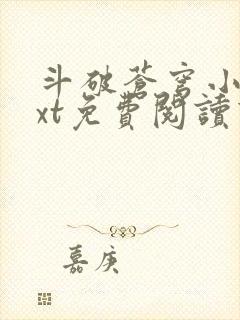 斗破蒼穹小
xt免費閱讀
嘉庚